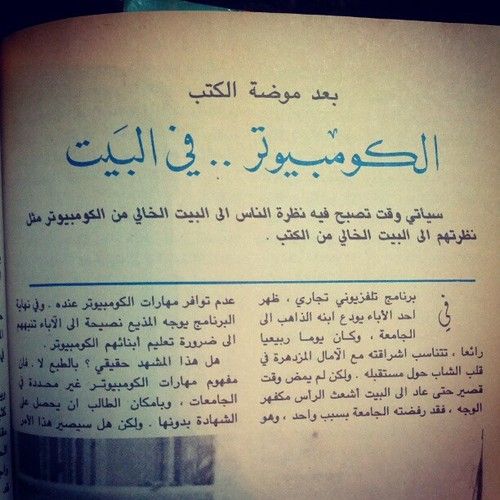 بعد موضة الكتب
الكومبيوتر .. في البَيت
سيأتي وقت تصبح فيه نظرة الناس الى البيت الخالي من الكومبيوتر مثل
نظرتهم الى البيت الخالي من الكتب .
في برنامج تلفزيوني تجاري ، ظهر
احد الأباء يودع ابنه الذاهب الى
الجامعة ، وكان يوما ربيعيا
رائعا ، تتناسب اشراقته مع الآمال المزدهرة في
قلب الشاب حول مستقبله . ولكن لم يمض وقت
قصير حتى عاد الى البيت أشعث الرأس مكفهر
الوجه ، فقد رفضته الجامعة بسبب واحد ، وهو
عدم توافر مهارات الكومبيوتر عنده . وفي نهاية
البرنامج يوجه المذيع نصيحة الى الآباء تنبههم
الى ضرورة تعليم ابنائهم الكومبيوتر .
هل هذا المشهد حقيقي ؟ بالطبع لا . فان
مفهوم مهارات الكومبيوتر غير محددة في
الجامعات ، وبامكان الطالب ان يحصل على
الشهادة بدونها . ولكن هل سيصبر هذا الأمر